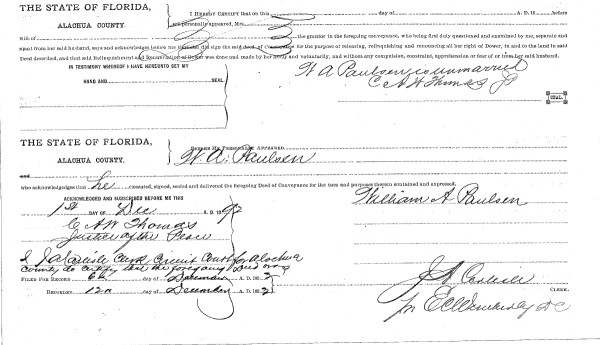 THE STATE OF FLORIDA,
ALACHUA COUNTY.
I HEREBY CERTIFY that on this day of A. D. 18 before
me personally appeared, Mrs.
wife of the grantor in the foregoing conveyance, who being first duly questioned and examined by me, separate and
apart from her said husband, says and acknowledges before me that she did sign the said deed of Conveyance for the purpose of releasing, relinquishing and renouncing all her right of Dower, in and to the land in said
Deed described, and that said Relinquishment and Renunciation of Dower was done and made by her freely and voluntarily, and without any compulsion, constraint, apprehension or fear of or from her said husband.
IN TESTIMONY WHEREOF I HAVE HEREUNTO SET MY
HAND AND SEAL
W A Paulsen is unmarried
C A W Thomas JP
SEAL
THE STATE OF FLORIDA,
ALACHUA COUNTY.
BEFORE ME PERSONALLY APPEARED
W. A. Paulsen
who acknowledges that he executed, signed, sealed and delivered the foregoing Deed of Conveyance for the uses and purposes therein contained and expressed.
ACKNOWLEDGED AND SUBSCRIBED BEFORE ME THIS
1st DAY OF Dec A. D. 1892
William A. Paulsen
C A W Thomas
Justice of the Peace
I J A Carlisle Clerk Circuit Court for Alachua
county do certify that the foregoing Deed was
FILED FOR RECORD 6th day of December A. D. 1892
RECORDED 12th day of December A. D. 1892
J A Carlisle
CLERK.
DC